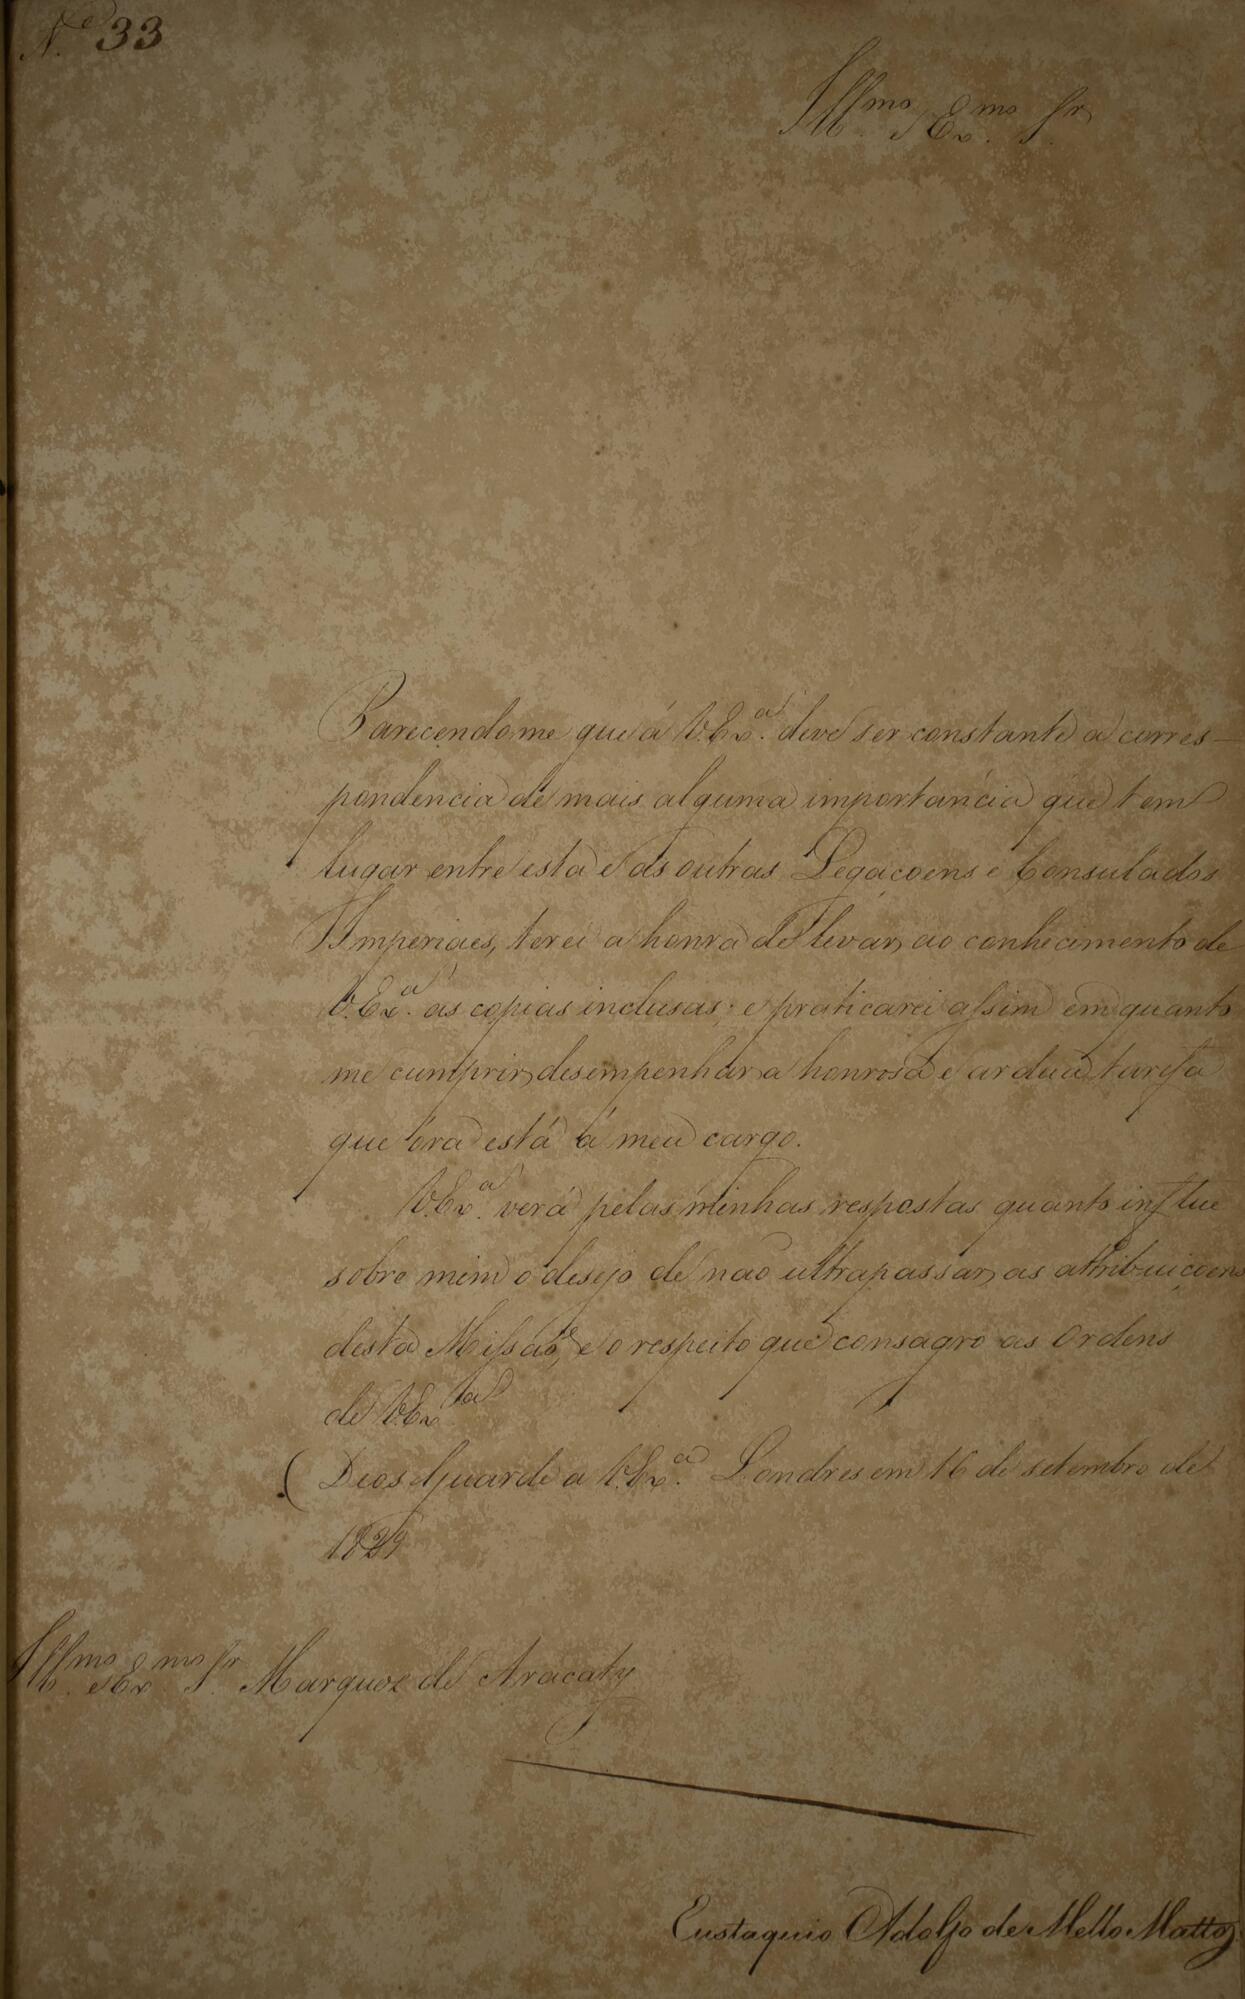 N.º 33
Ill.mo e Ex.mo Sr.
Parecendome que á V. Ex.a deve ser constante a corres-
pondencia de mais alguma importancia que tem
lugar entre esta e as outras Legaçoens e Consulados
Imperiaes, terei a honra de levar ao conhecimento de
V. Ex.a as copias inclusas; e praticarei assim em quanto
me cumprir desempenhar a honrosa e ardua tarefa
que óra está á meu cargo.
V. Ex.a verá pelas minhas respostas quanto influe
sobre mim o desejo de nao ultrapassar as attribuiçoens
desta Missaõ, e o respeito que consagro as Ordens
de V. Ex.a
Deos Guarde a V. Ex.a Londres em 16 de setembro de
1829
Ill.mo e Ex.mo Sr. Marquez de Aracaty
Eustaquio Adolfo de Mello Mattos